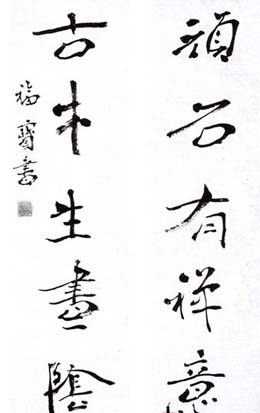 頑石有禪意
古木生晝陰
福寶書